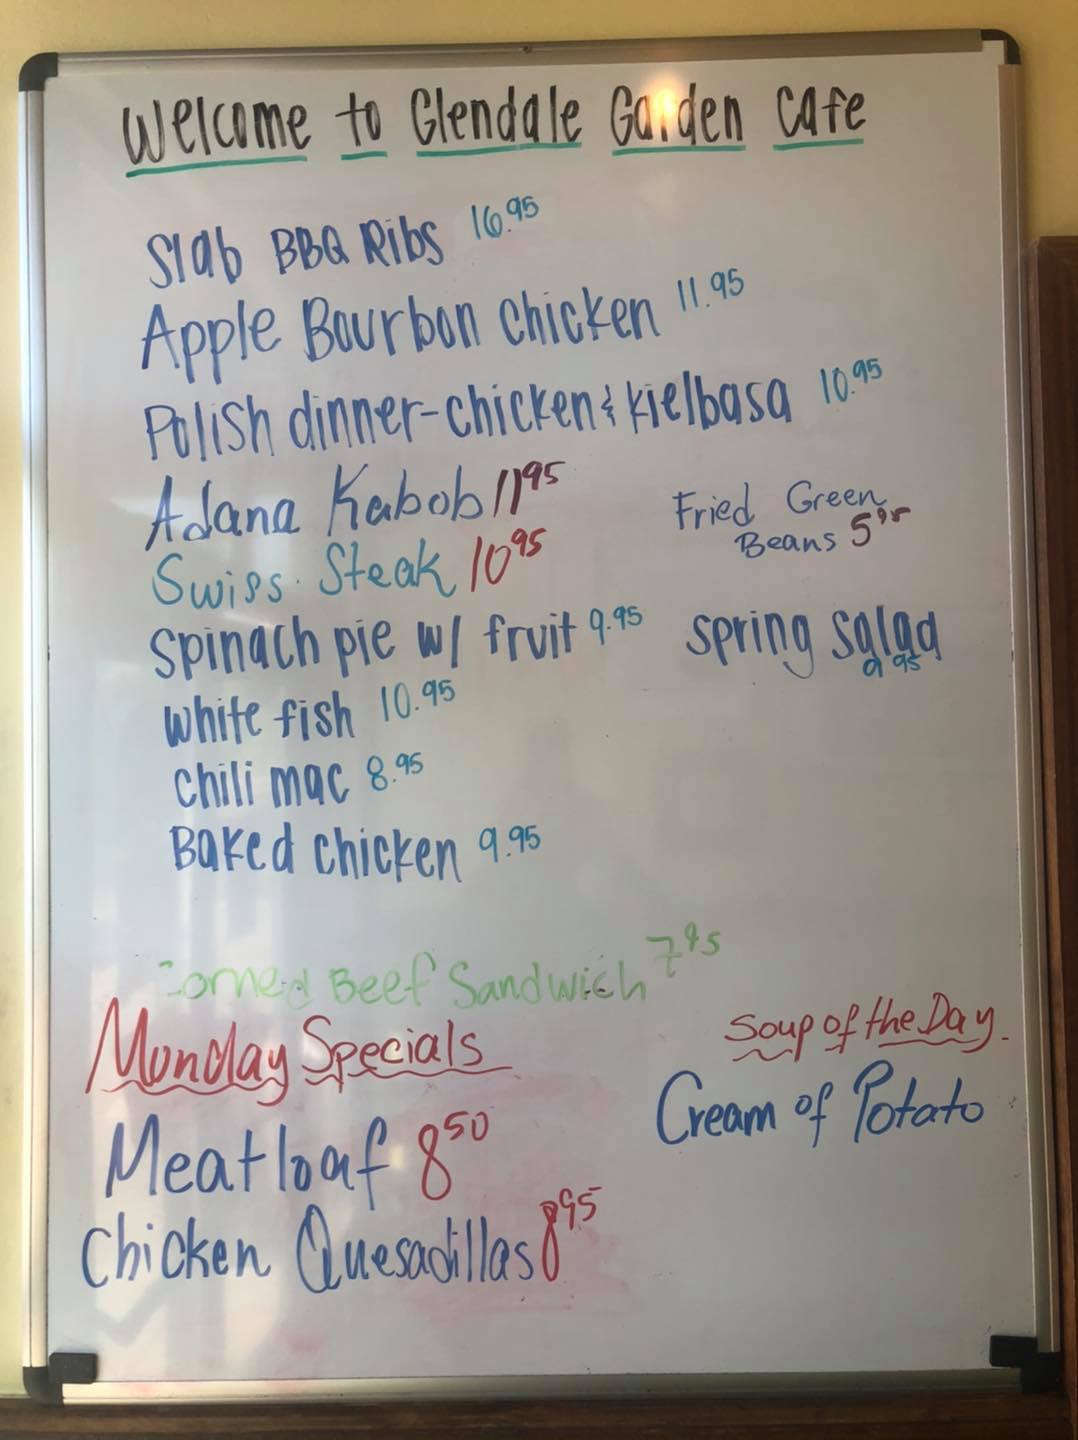 Welcome to Glendale Garden Cafe
Slab BBQ Ribs 16.95
Apple Bourbon chicken 11.95
Polish dinner-chicken & kielbasa 10.95
Adana Kabob 11 95
Fried Green
Beans 5 95
Swiss Steak 10 95
Spinach pie w/ fruit 9.95
spring salad
9 95
white fish 10.95
chili mac 8.95
Baked chicken 9.95
Corned Beef Sandwich 7 95
Monday Specials
Soup of the Day.
Cream of Potato
Meatloaf 8 50
Chicken Quesadillas 8 95